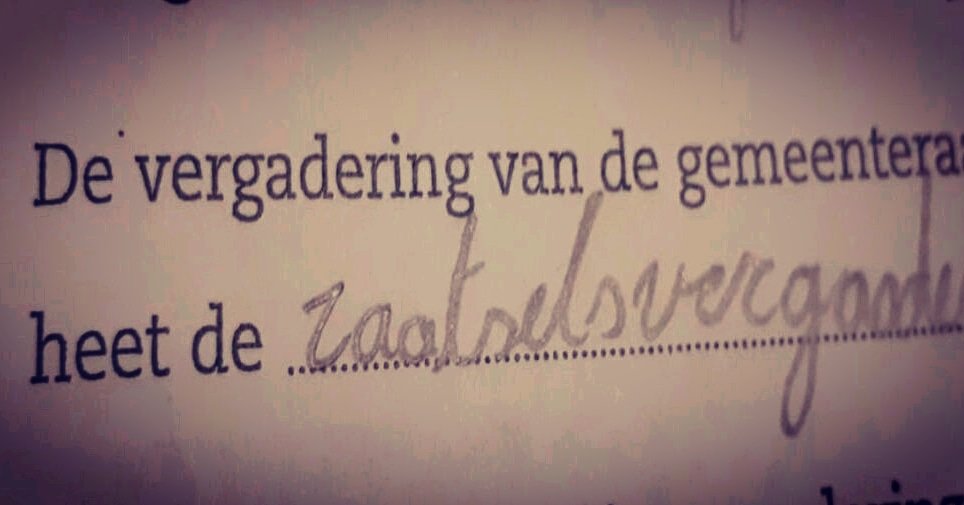 De vergadering van de gemeentera
heet de raatselsvergade